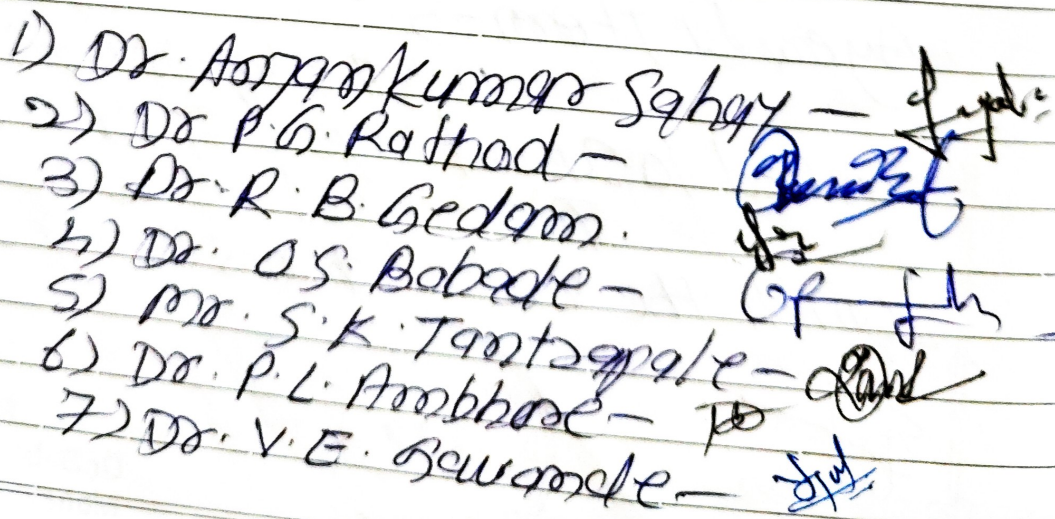 1) Dr. Anjan Kumar Sahay -
2) Dr P.G. Rathod -
3) Dr. R. B. Gedam.
4) Dr. O S. Bobade -
5) Mr. S.K. Tantrapale -
6) Dr. P.L. Ambhore -
7) Dr. V. E. Gawande -